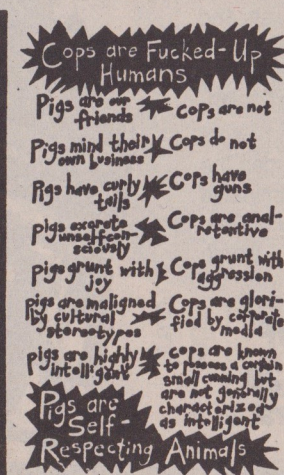 Cops are Fucked-Up
Humans
Pigs are our
friends
Cops are not
Pigs mind their
own business
Cops do not
Pigs have curly
tails
Cops have
guns
pigs excrete
unselfcon-
sciously
Cops are anal-
retentive
pigs grunt with
joy
Cops grunt with
aggression
pigs are maligned
by cultural
stereotypes
Cops are glori-
fied by corporate
media
pigs are highly
intelligent
cops are known
to possess a certain
small cunning but
are not generally
characterized
as intelligent
Pigs are
Self-
Respecting Animals